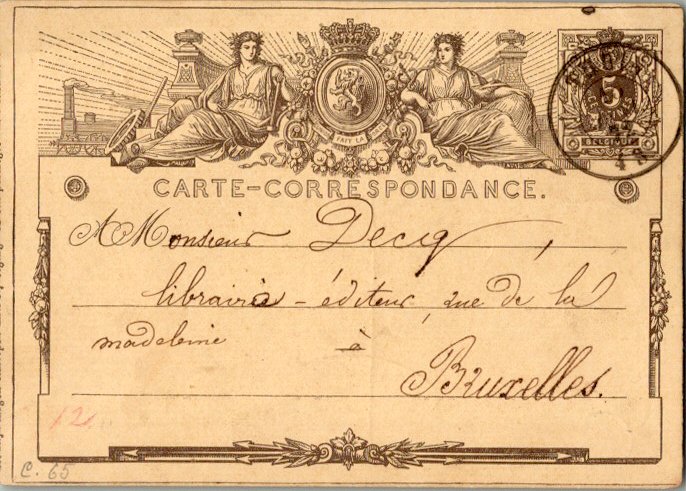 FAIT LA
5
BELGIQUE
CARTE-CORRESPONDANCE.
A Monsieur Decq,
libraire - éditeur, rue de la
madeleine à
Bruxelles.
12
C. 65